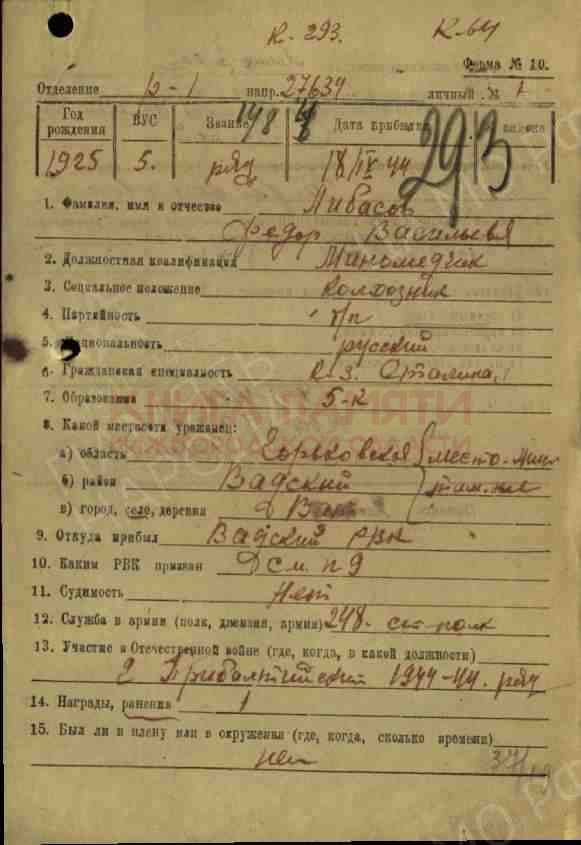 К. 293. К-64
Форма № 10.
Отделение р-1 напр. 27634 личный № 1
Год рождения ВУС Звание 148 Дата прибытия 293
1925 5. ряд 18/IX-44
1. Фамилия, имя и отчество Либасов
Федор Васильевя
2. Должностная квалификация Миномедчик
3. Социальное положение Колхозник
4. Партийность б/п
5. Национальность русский
6. Гражданская специальность К-з. Сталина
7. Образование 5-к
КНИГА ПАМЯТИ
8. Какой местности уроженец:
а) область Горьковская место-
б) район Вадский там же
в) город, село, деревня д Вад
9. Откуда прибыл Вадский РВК
10. Каким РВК призван
11. Судимость нет
12. Служба в армии (полк, дивизия, армия) 248. сп-полк
13. Участие в Отечественной войне (где, когда, в какой должности)
2 Прибалтийский 1944-44. ряд
14. Награды, ранения 1
15. Был ли в плену или в окружении (где, когда, сколько времени)
нет